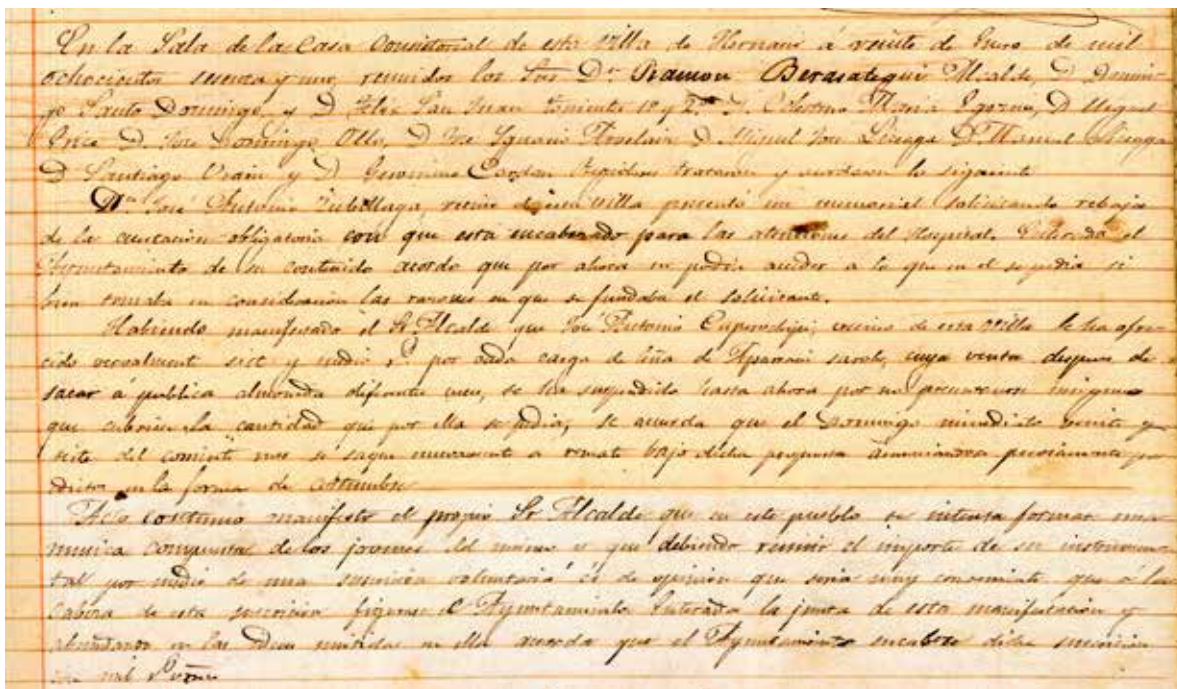 En la Sala de la Casa Consistorial de esta Villa de Hernani á veinte de Enero de mil
ochocientos sesenta y uno, reunidos los Sres Dn Ramon Berasategui Alcalde, D Domin-
go Santo Domingo, y D Felix San Juan tenientes 1º y 2º D. Celestino Maria Egozcue, D Miguel
D. José Domingo Olló, D José Ygnacio D Miguel José Liceaga D Manuel
D Santiago y D Geronimo Regidores trataron y acordaron lo siguiente
Dn José Antonio vecino de esta villa presentó un memorial solicitando rebaja
de la obligatoria con que esta encabezado para las atenciones del Hospital. Enterado el
Ayuntamiento de su contenido acordó que por ahora no podia acceder a lo que en el se pedia si
bien tomaba en consideracion las razones en que se fundaba el solicitante.
Habiendo manifestado el Sr Alcalde que José Antonio vecino de esta villa le ha ofre-
cido verbalmente siete y medio rs por cada carga de leña de cuya venta despues de
sacar á publica almoneda diferentes veces, se ha suspendido hasta ahora por no
que cubriesen la cantidad que por ella se pedia, se acuerda que el Domingo inmediato veinte y
siete del corriente mes se saque nuevamente a remate bajo dicha propuesta anunciandose previamente por
edictos en la forma de costumbre
Acto continuo manifestó el propio Sr Alcalde que en este pueblo se intenta formar una
musica compuesta de los jovenes del mismo y que debiendo reunir el importe de su instrumen-
tal por medio de una suscricion voluntaria es de opinion que seria muy conveniente que á la
cabeza de esta suscricion figurase el Ayuntamiento Enterada la junta de esta manifestacion y
abundando en las ideas emitidas en ella acordó que el Ayuntamiento encabece dicha suscricion
con mil rs